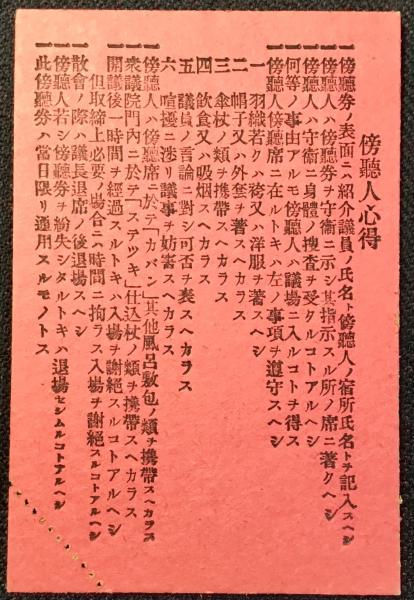 傍聽人心得
一傍聽券ノ表面ニハ紹介議員ノ氏名ト傍聽人ノ宿所氏名トヲ記入スヘシ
一傍聽人ハ傍聽券ヲ守衞ニ示シ其指示スル所ノ席ニ著クヘシ
一傍聽人ハ守衞ニ身體ノ搜査ヲ受クルコトアルヘシ
一何等ノ事由アルモ傍聽人ハ議場ニ入ルコトヲ得ス
一傍聽人傍聽席ニ在ルトキハ左ノ事項ヲ遵守スヘシ
一 羽織若クハ袴又ハ洋服ヲ著スヘシ
二 帽子又ハ外套ヲ著スヘカラス
三 傘杖ノ類ヲ携帶スヘカラス
四 飮食又ハ吸烟スヘカラス
五 議員ノ言論ニ對シ可否ヲ表スヘカラス
六 喧擾ニ涉リ議事ヲ妨害スヘカラス
一傍聽人ハ傍聽席ニ於テ「カバン」其他風呂敷包ノ類ヲ携帶スヘカラス
一衆議院門內ニ於テ「ステツキ」仕込杖ノ類ヲ携帶スヘカラス
一開議後一時間ヲ經過スルトキハ入場ヲ謝絕スルコトアルヘシ
但取締上必要ノ場合ニハ時間ニ拘ラス入場ヲ謝絕スルコトアルヘシ
一散會ノ際ハ議長退席ノ後退場スヘシ
一傍聽人若シ傍聽券ヲ紛失シタルトキハ退場セシムルコトアルヘシ
一此傍聽券ハ當日限リ通用スルモノトス